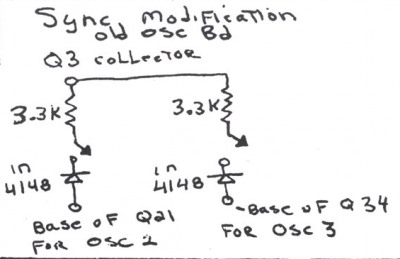 Sync Modification
old osc Bd
Q3 collector
3.3K
3.3K
in
4148
in
4148
Base of Q21
For osc 2
-Base of Q 34
For osc 3